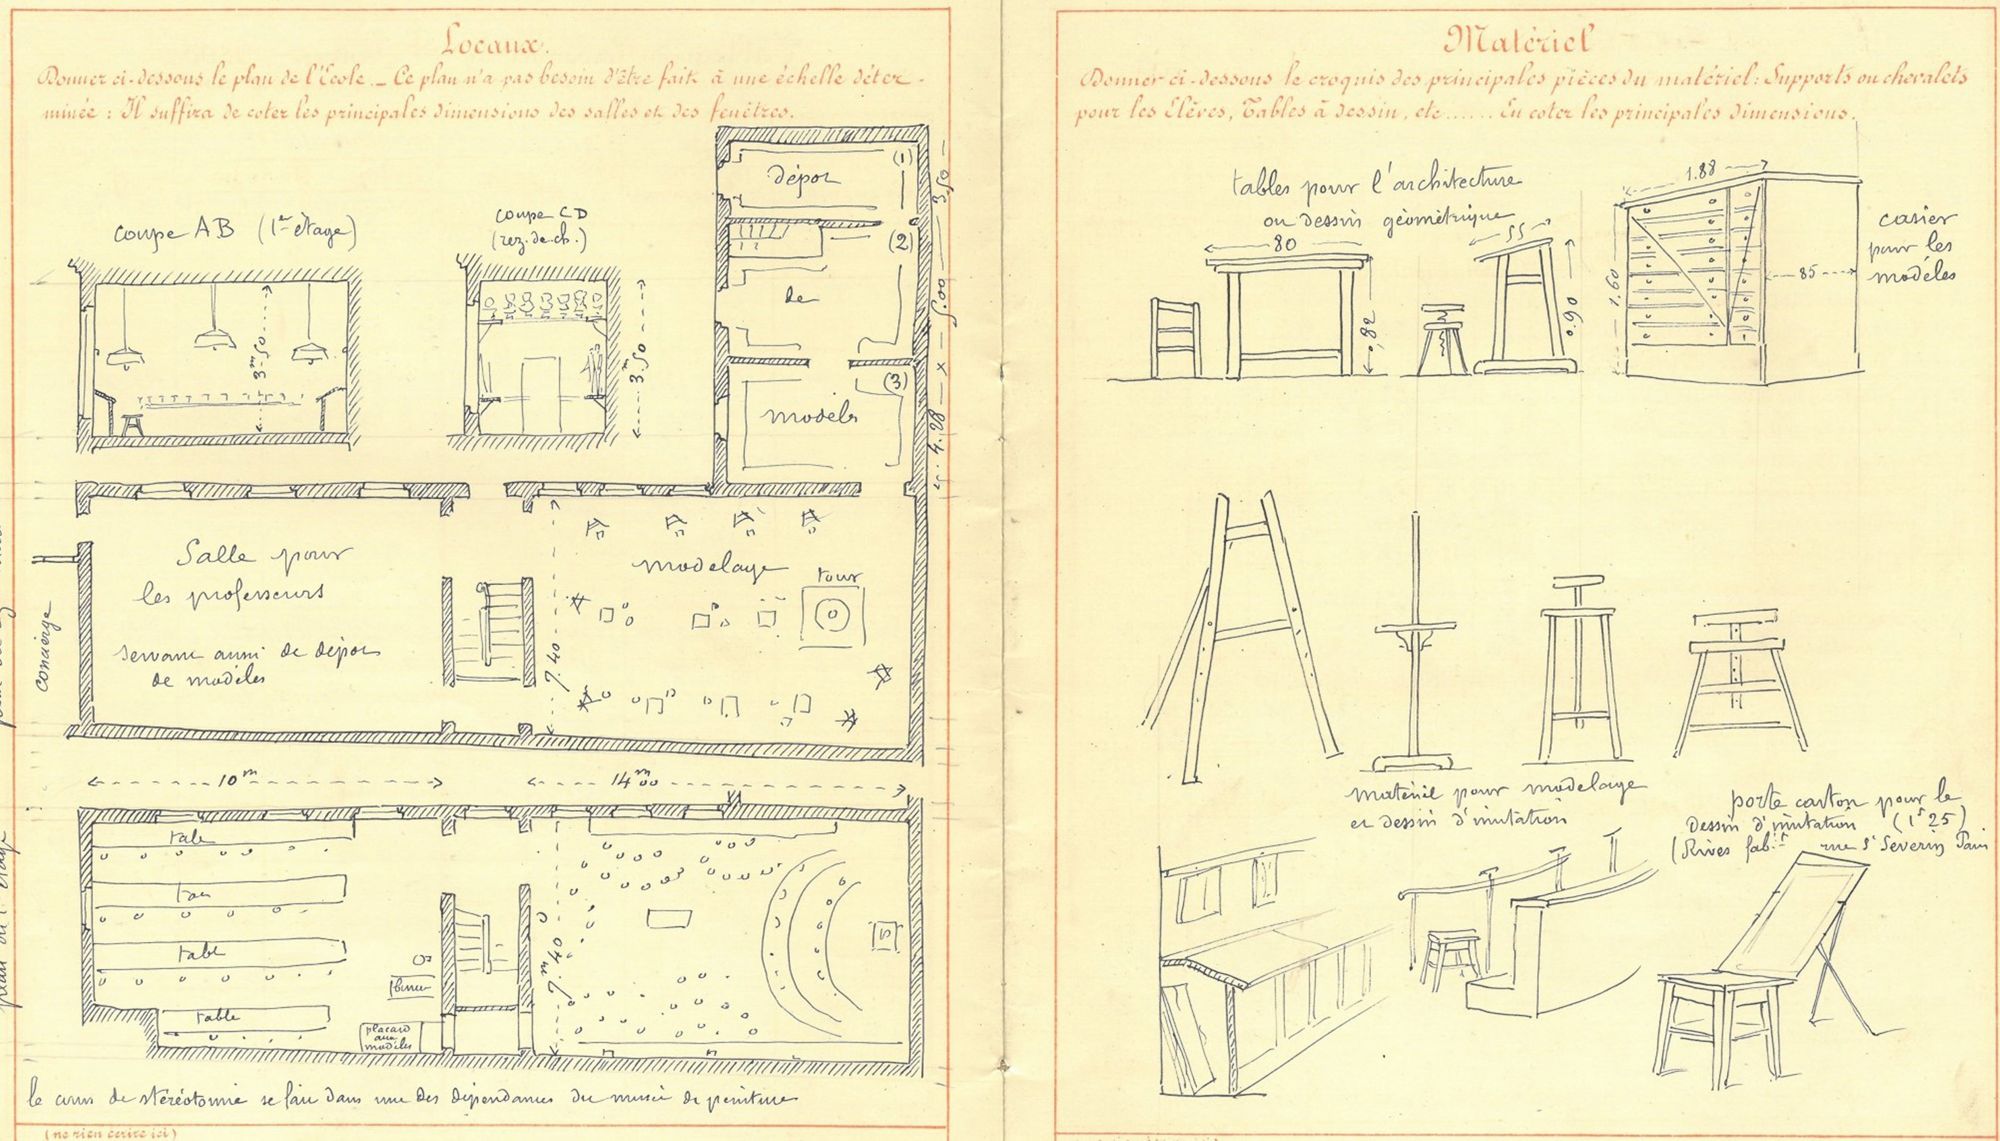 Locaux.
Donner ci-dessous le plan de l'Ecole._ Ce plan n'a pas besoin d'être fait à une échelle déter-
minée : Il suffira de coter les principales dimensions des salles et des fenêtres.
dépot
(1)
3.50
(2)
de
5.00
(3)
modèls
4.28
coupe AB (1er étage)
3m.50
coupe CD
(rez.de.ch.)
3m.50
Salle pour
les professeurs
servant aussi de dépot
de modèles
concierge
modelage
tour
7.40
10m
14m00
table
table
table
table
placard
aux
modèles
7m.40
plan du 1er étage
le cours de stéréotomie se fait dans une des dépendances du musée de peinture
(ne rien écrire ici)
Matériel
Donner ci-dessous le croquis des principales pièces du matériel: Supports ou chevalets
pour les Elèves, Tables à dessin, etc...... En coter les principales dimensions.
tables pour l'architecture
ou dessin géométrique
80
0,82
55
0.90
1.88
1.60
85
casier
pour les
modèles
Matériel pour modelage
et dessin d'imitation
porte carton pour le
Dessin d'imitation (1f 25)
(Rives fab.t rue St Severin Paris